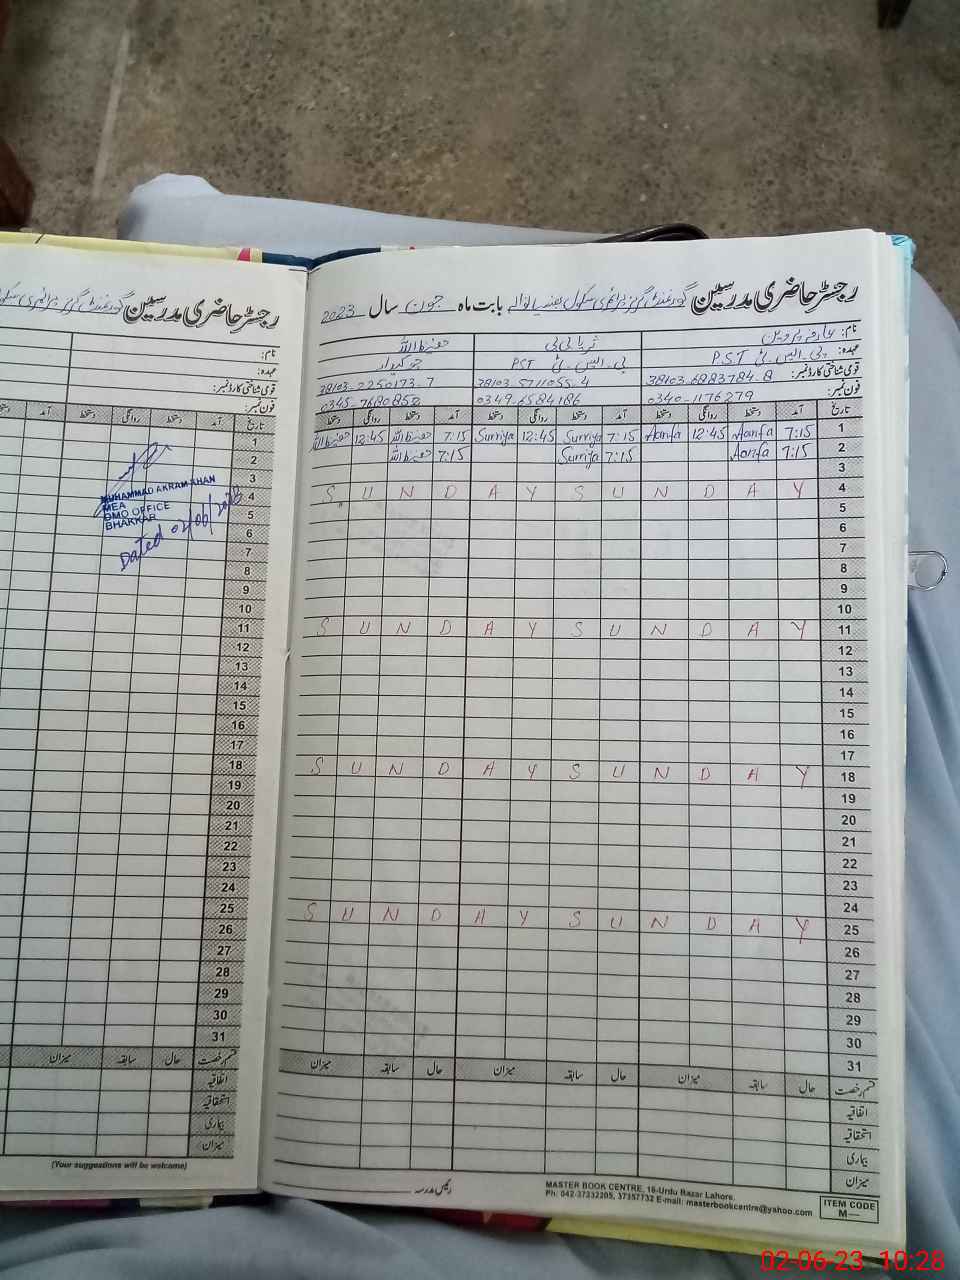 رجسٹر حاضری مدرسین گورنمنٹ گرلز پرائمری سکول بابت ماہ جون سال 2023
نام: عارفہ پروین ثریا بی بی حفیظ اللہ
عہدہ: پی۔ایس۔ٹی PST پی۔ایس۔ٹی PST چوکیدار
قومی شناختی کارڈ نمبر: 38103-6983784-8 38103-5711055-4 38103-2250173-7
فون نمبر: 0340-1176279 0349-6584186 0345-7680852
تاریخ آمد دستخط روانگی دستخط آمد دستخط روانگی دستخط آمد دستخط روانگی دستخط
1 7:15 Aarifa 12:45 Aarifa 7:15 Surriya 12:45 Surriya 7:15 حفیظ اللہ 12:45 حفیظ اللہ
2 7:15 Aarifa 7:15 Surriya 7:15 حفیظ اللہ
3
4 S U N D A Y S U N D A Y
5
6
7
8
9
10
11 S U N D A Y S U N D A Y
12
13
14
15
16
17
18 S U N D A Y S U N D A Y
19
20
21
22
23
24
25 S U N D A Y S U N D A Y
26
27
28
29
30
31
قسم رخصت حال سابقہ میزان حال سابقہ میزان حال سابقہ میزان
اتفاقیہ
استحقاقیہ
بیماری
میزان
رئیس مدرسہ
MASTER BOOK CENTRE, 16-Urdu Bazar Lahore.
Ph: 042-37232205, 37357732 E-mail: masterbookcentre@yahoo.com
ITEM CODE
M—
رجسٹر حاضری مدرسین گورنمنٹ گرلز پرائمری سکول
نام:
عہدہ:
قومی شناختی کارڈ نمبر:
فون نمبر:
تاریخ آمد دستخط روانگی دستخط آمد دستخط
1
2
3
4
5
6
7
8
9
10
11
12
13
14
15
16
17
18
19
20
21
22
23
24
25
26
27
28
29
30
31
MUHAMMAD AKRAM KHAN
MEA
DMO OFFICE
BHAKKAR
Dated 02/06/2023
قسم رخصت حال سابقہ میزان
اتفاقیہ
استحقاقیہ
بیماری
میزان
(Your suggestions will be welcome)
02-06-23 10:28